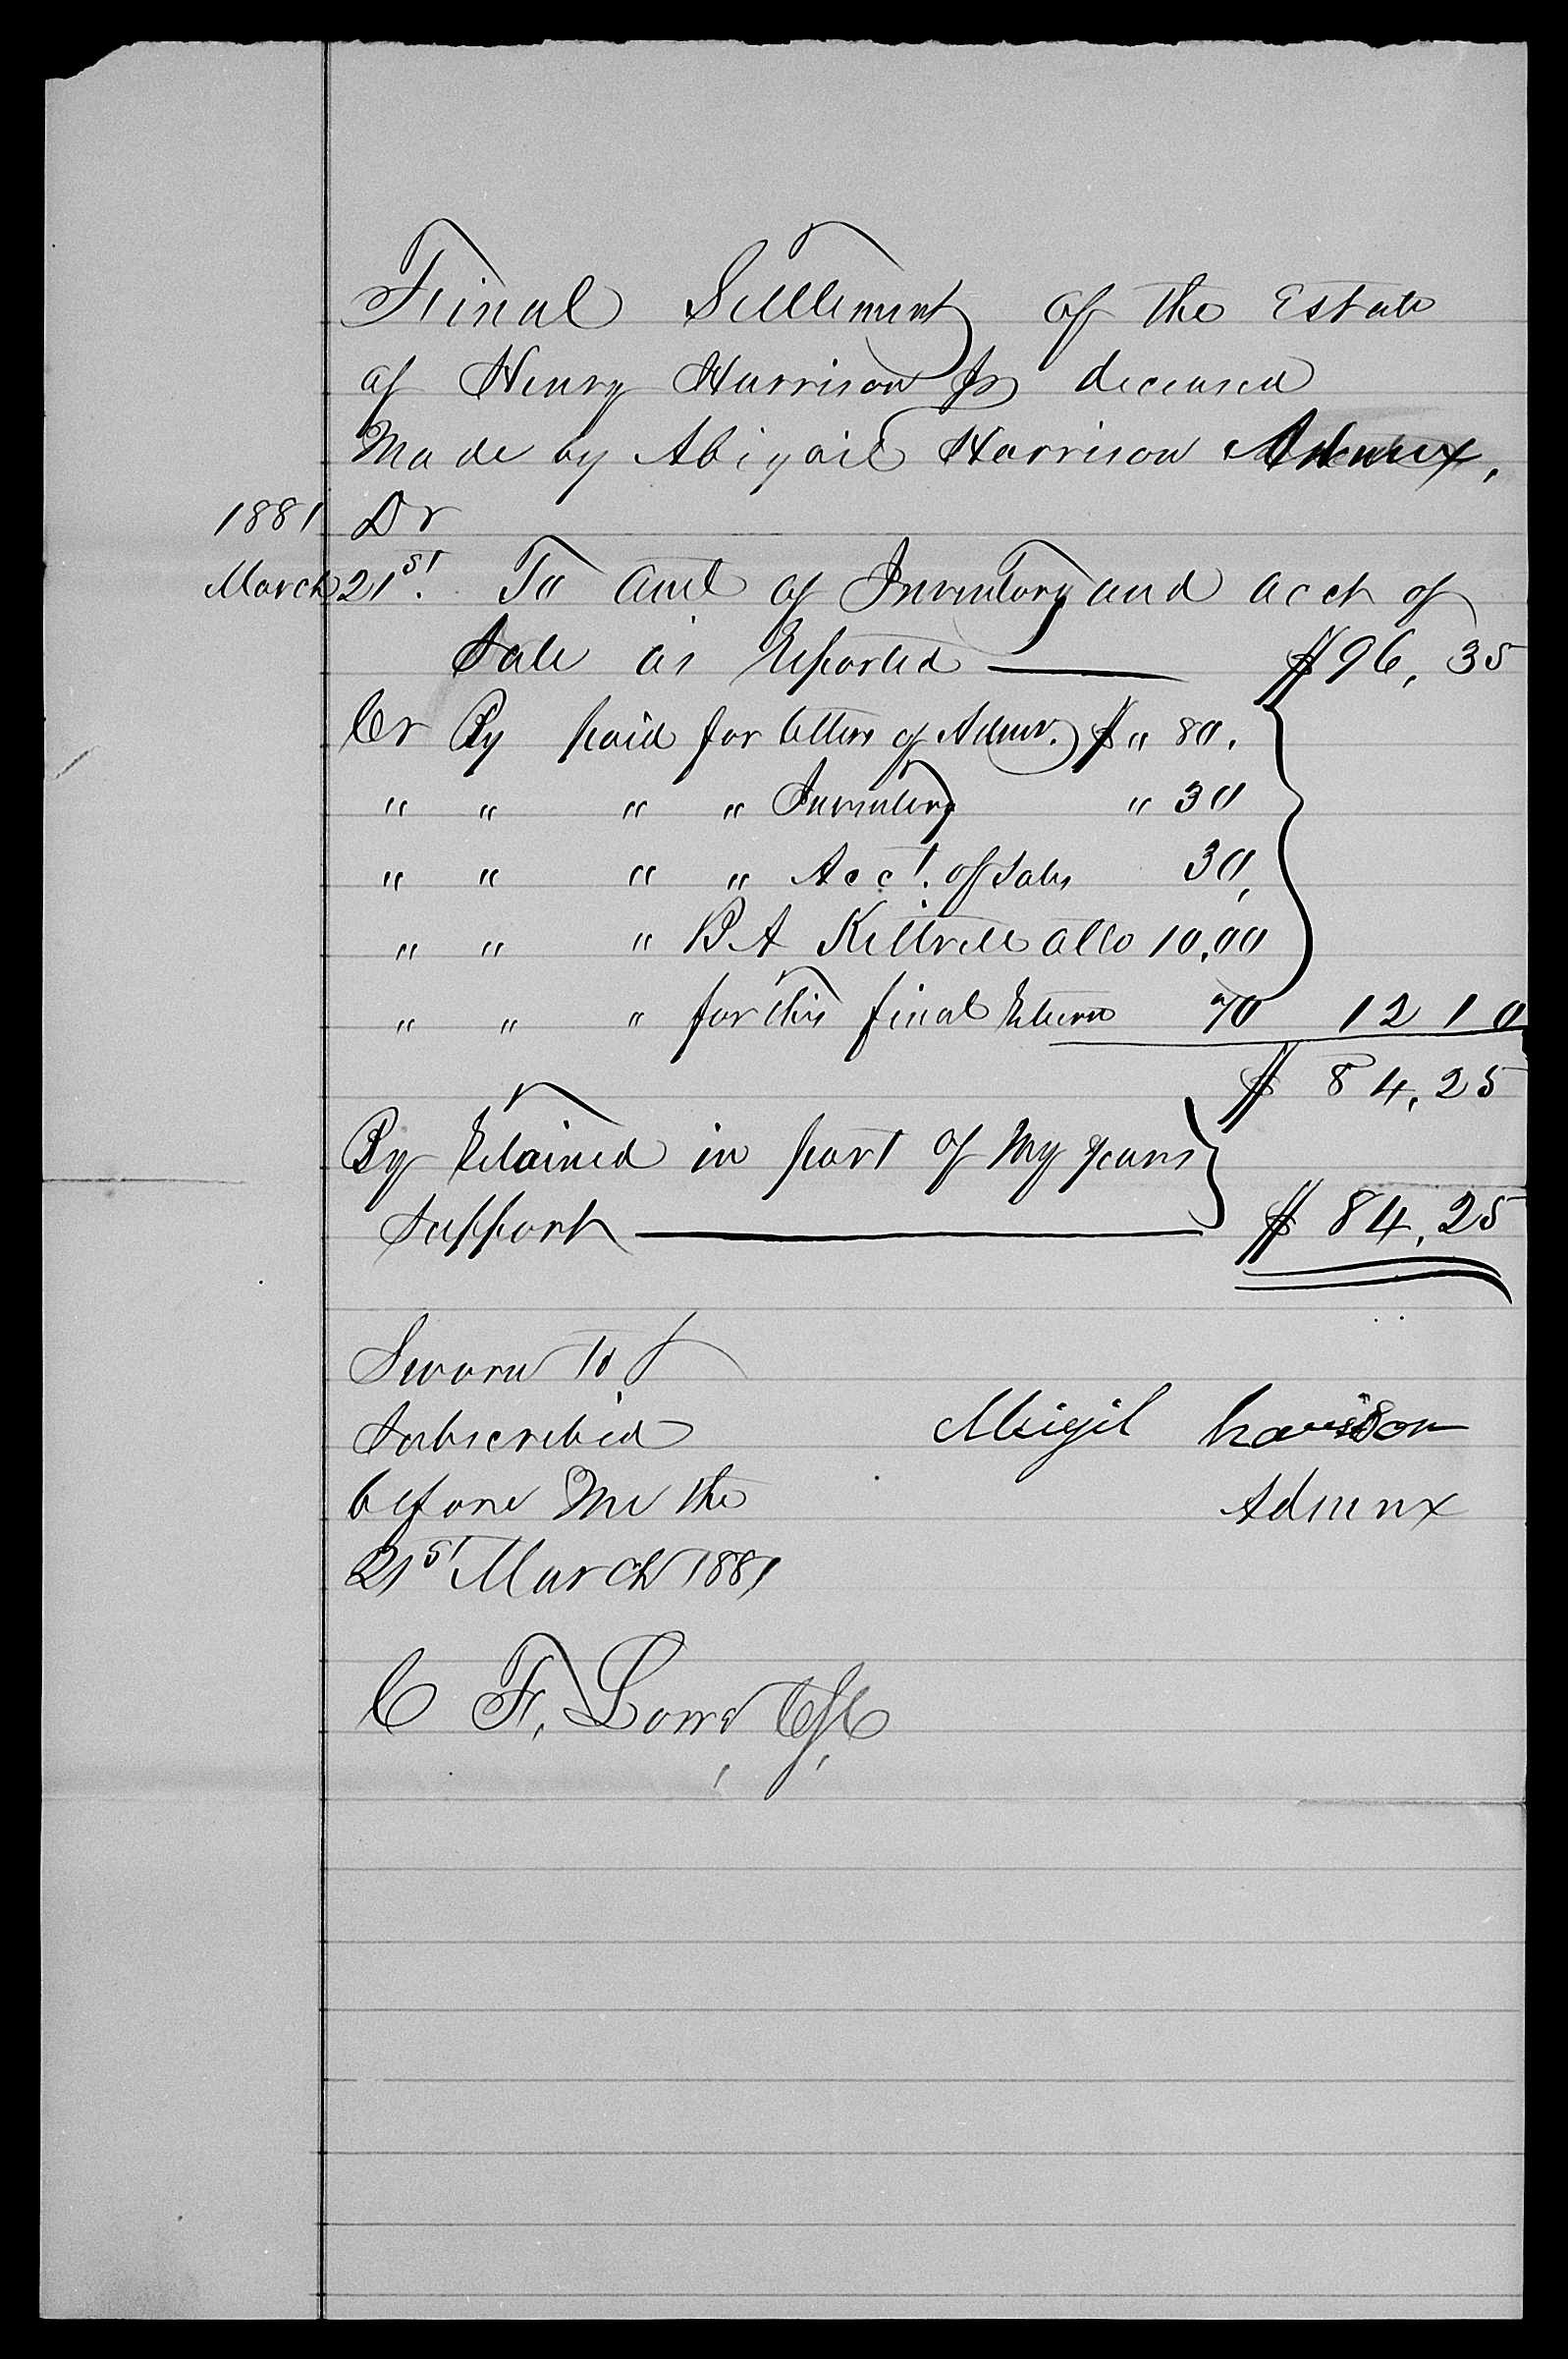 Final Settlement of the Estate
of Henry Harrison Jr deceased
Made by Abigail Harrison Admrx,
1881 Dr
March 21st. To amt of Inventory and acct of
Sale as Reported $96,35
Cr By paid for letters of Admr. $ " 80.
" " " " Inventory " 30
" " " " Acct. of Sales 30,
" " " B A Kittrell allo 10,00
" " " for this final Return 70 12 10
$ 84,25
By Retained in part of My years
Support $ 84,25
Sworn to &
Subscribed
before Me the
21st March 1881
Abigil harrison
Admnx
C F. Lowe CSC